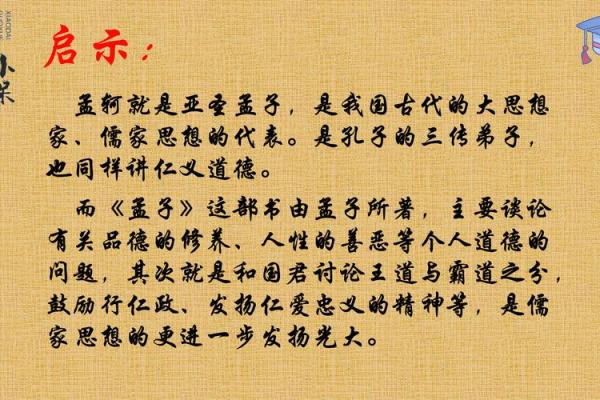 启示：
孟轲就是亚圣孟子，是我国古代的大思想
家、儒家思想的代表。是孔子的三传弟子，
也同样讲仁义道德。
而《孟子》这部书由孟子所著，主要谈论
有关品德的修养、人性的善恶等个人道德的
问题，其次就是和国君讨论王道与霸道之分，
鼓励行仁政、发扬仁爱忠义的精神等，是儒
家思想的更进一步发扬光大。